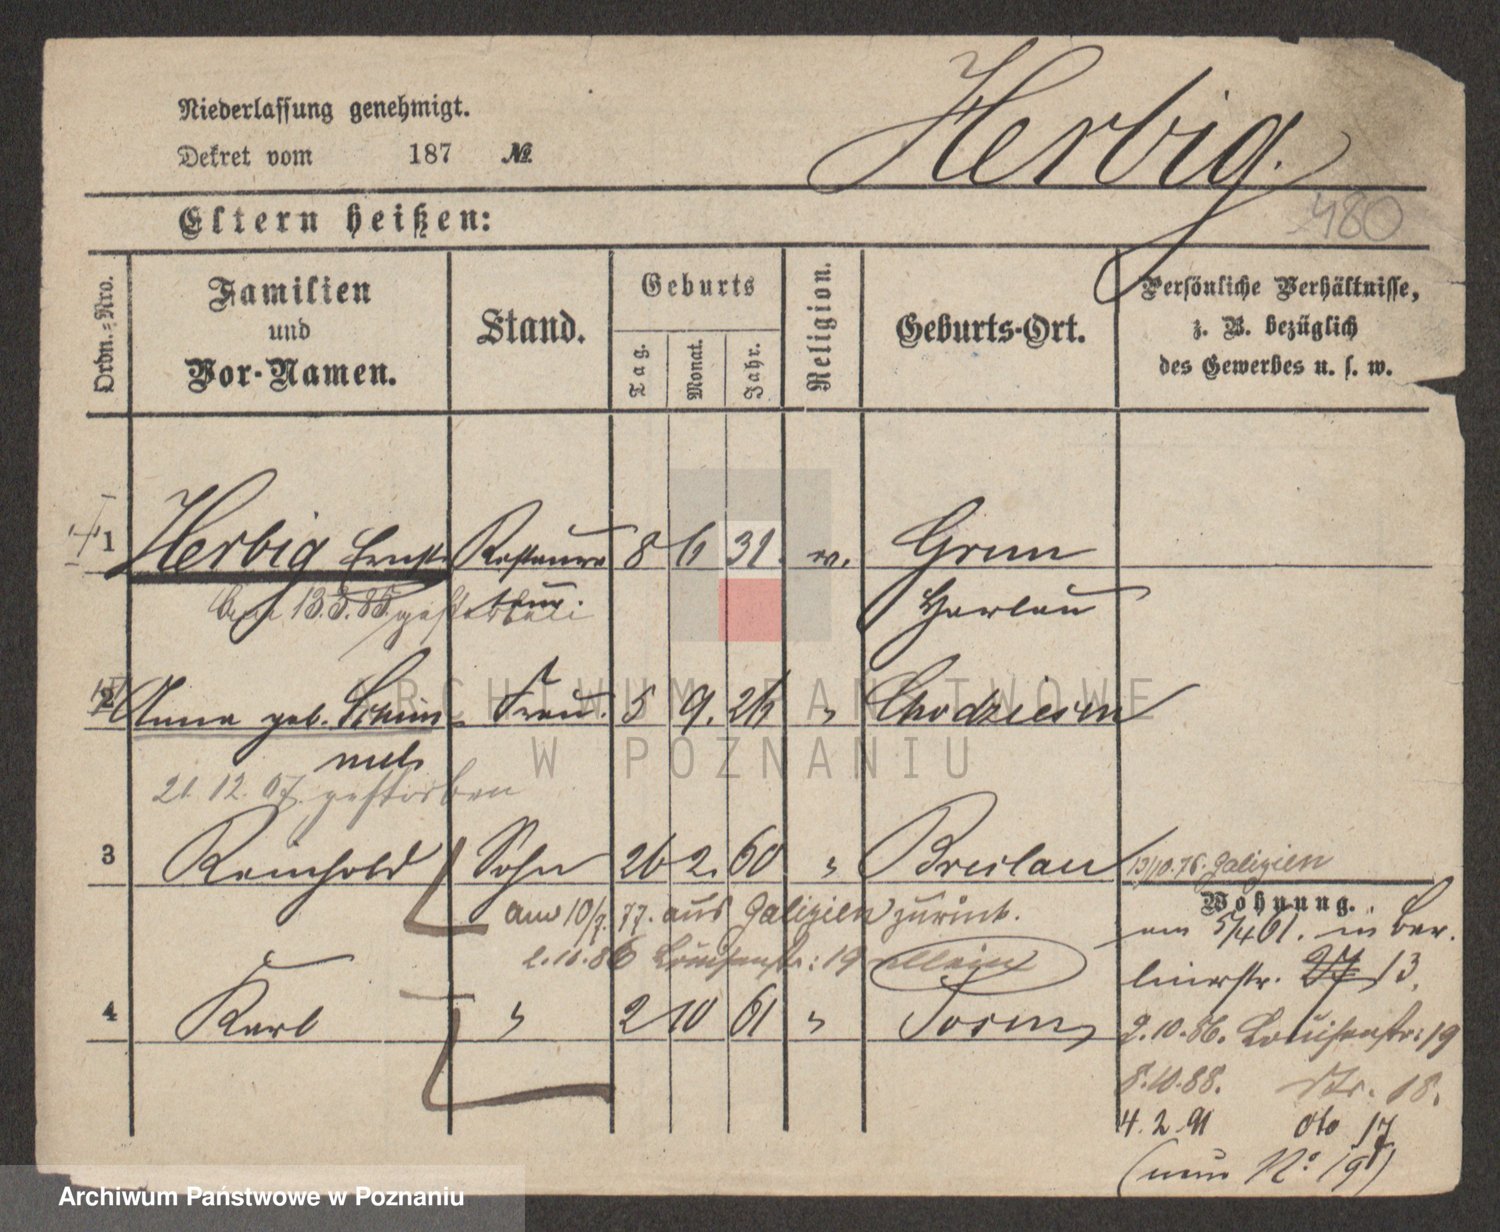 Niederlassung genehmigt.
Dekret vom 187 №
Herbig.
480
Eltern heißen:
Ordn.-Nro.
Familien und Vor-Namen.
Stand.
Geburts
Tag.
Monat.
Jahr.
Religion.
Geburts-Ort.
Persönliche Verhältnisse,
z. B. bezüglich
des Gewerbes u. s. w.
1 Herbig Ernst Restaura 8 6 31. ev. Grun
teur. Hartau
13.3.85. gestorben
2 Anna geb. Schim Frau. 5 9. 26 " Chodziesen
mel
21.12.07. gestorben
3 Reinhold Sohn 26 2. 60 " Breslau 13/10.76. Galizien
am 10/7. 77. aus Galizien zurück.
2.10.86 Louisenstr: 19 allein
4 Karl " 2 10 61 " Posen
Wohnung.
am 5/4 61. in Ber.
linerstr. 27 13.
2.10.86. Louisenstr: 19
8.10.88. Str. 18.
4.2.91 dto 17
(nun No 19)
ARCHIWUM PAŃSTWOWE
W POZNANIU
Archiwum Państwowe w Poznaniu